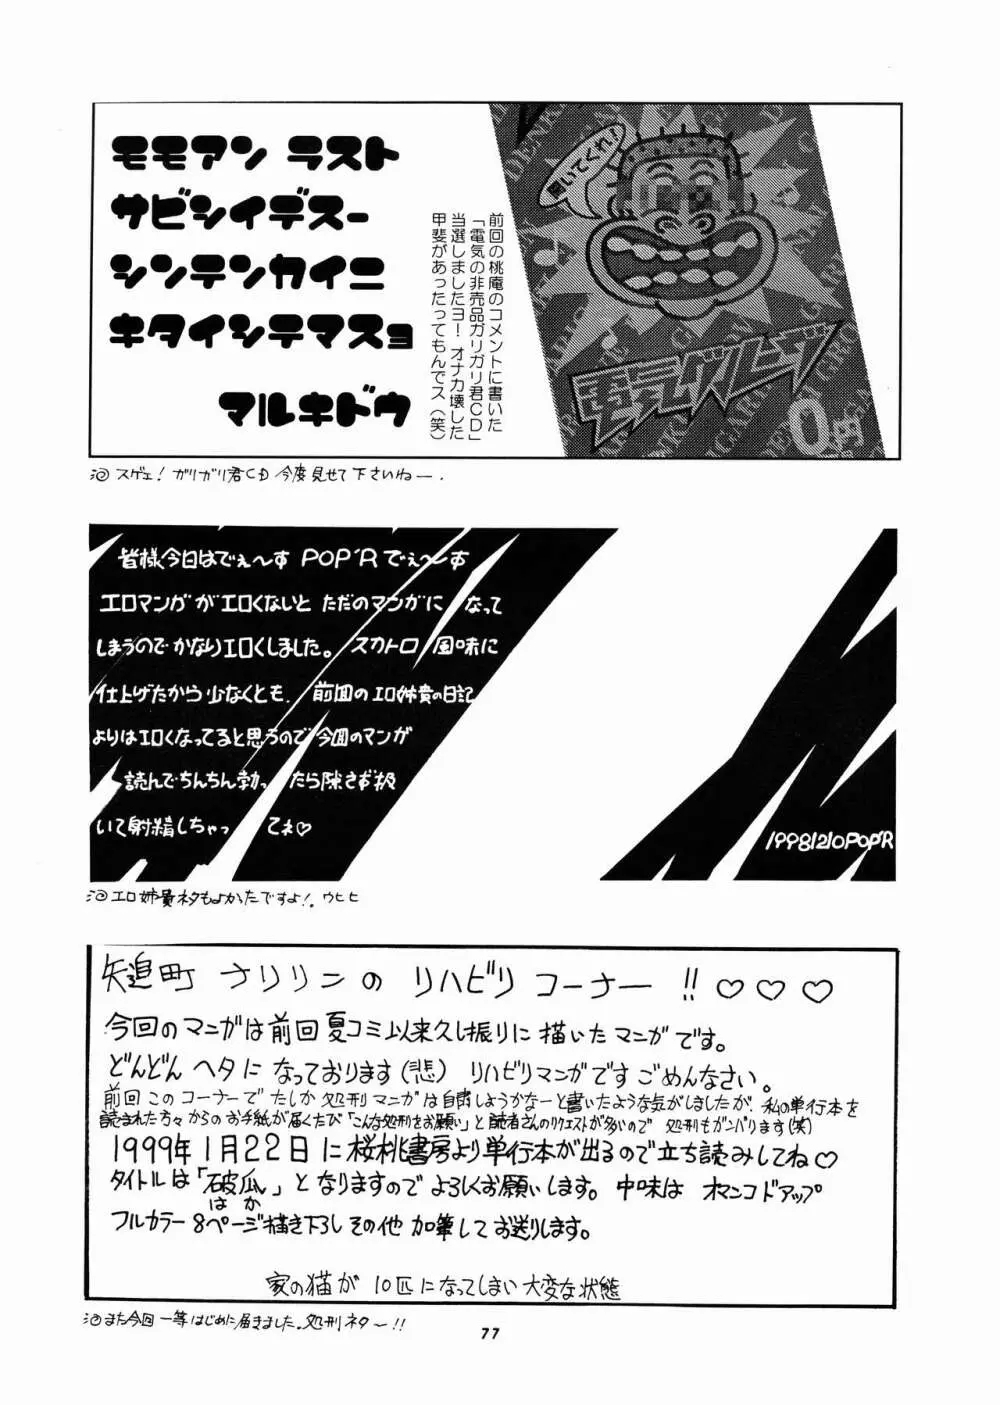 モモアン ラスト
サビシイデスー
シンテンカイニ
キタイシテマスョ
マルキドウ
前回の桃庵のコメントに書いた
「電気の非売品ガリガリ君CD」
当選しましたヨ！ オナカ壊した
甲斐があったってもんでス（笑）
聞いてくれ！
電気グルーブ
0円
スゲェ！ ガリガリ君CD 今度見せて下さいねー.
皆様今日はでぇ〜す POP'Rでぇ〜す
エロマンガがエロくないと ただのマンガに なって
しまうのでかなりエロくしました。スカトロ 風味に
仕上げたから少なくとも、前回のエロ姉貴の日記
よりはエロくなってると思うので今回のマンガ
読んでちんちん勃っ たら隠さず扱
いて射精しちゃっ てネ♡
19981210POP'R
エロ姉貴ネタもよかったですよ！。ウヒヒ
矢追町 ナリリンの リハビリ コーナー !! ♡♡♡
今回のマンガは前回夏コミ以来久し振りに描いたマンガです。
どんどん ヘタに なっております（悲） リハビリマンガです ごめんなさい。
前回このコーナーで たしか 処刑マンガは自粛しようかなーと書いたような気がしましたが、私の単行本を
読まれた方々からのお手紙が届くたび「こんな処刑をお願い」と読者さんのリクエストが多いので 処刑もガンバります（笑）
1999年1月22日に桜桃書房より単行本が出るので立ち読みしてね♡
タイトルは「破瓜」となりますのでよろしくお願いします。中味は オマンコドアップ
はか
フルカラー8ページ描き下ろし その他 加筆してお送りします。
家の猫が 10匹になってしまい大変な状態
また今回一等はじめに届きました。処刑ネター!!
77